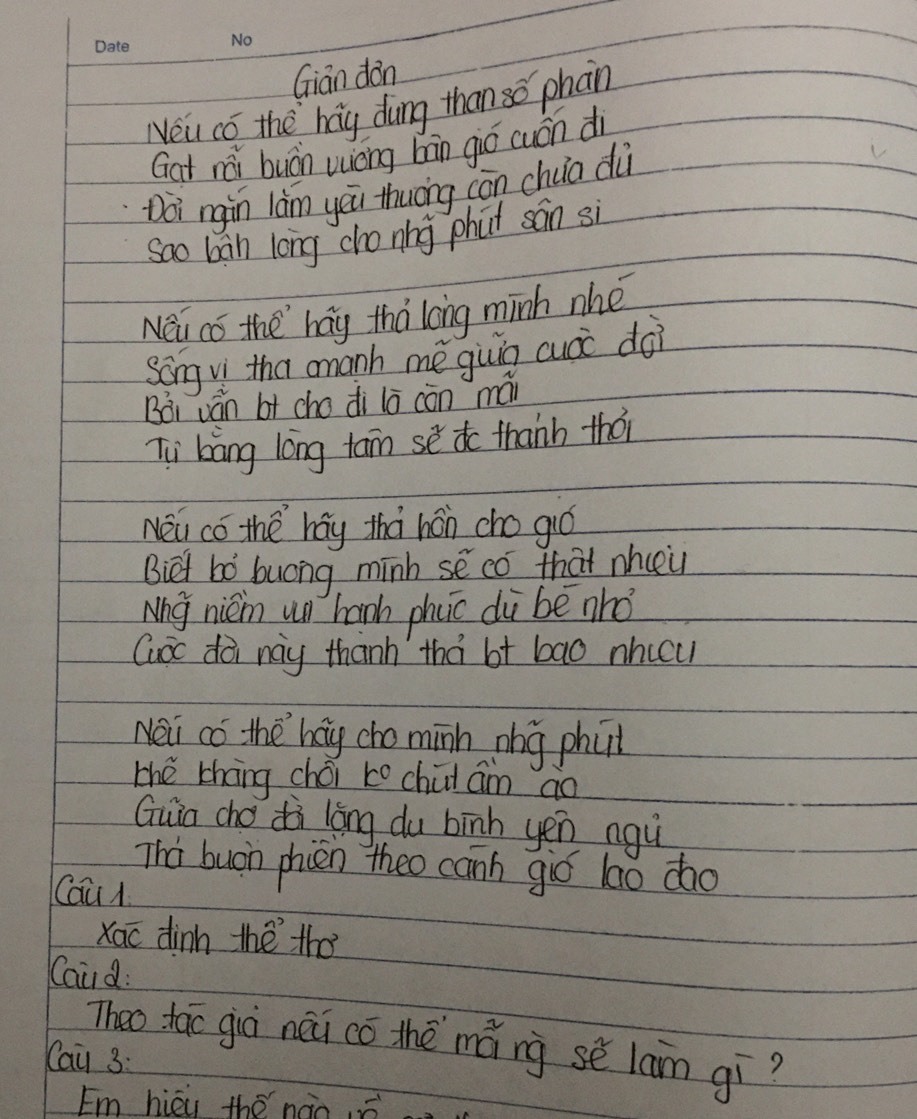 Date No
Giản đơn
Nếu có thể hãy đừng than số phận
Gạt nỗi buồn vướng bận gió cuốn đi
Đời ngắn lắm yêu thương còn chưa đủ
Sao bận lòng cho nhg~ phút sân si
Nếu có thể hãy thả lòng mình nhé
Sống vị tha mạnh mẽ giữa cuộc đời
Bởi vẫn bt cho đi là còn mãi
Tự bằng lòng tâm sẽ đc thảnh thơi
Nếu có thể hãy thả hồn cho gió
Biết bỏ buông mình sẽ có thật nhiều
Nhg~ niềm vui hạnh phúc dù bé nhỏ
Cuộc đời này thanh thả bt bao nhiêu
Nếu có thể hãy cho mình nhg~ phút
Khẽ khàng chối ko chút ầm ào
Giữa chợ đời lặng du bình yên ngủ
Thả buồn phiền theo cánh gió lao đao
Câu 1.
Xác định thể thơ
Câu 2:
Theo tác giả nếu có thể mỗi ng sẽ làm gì?
Câu 3:
Em hiểu thế nào về